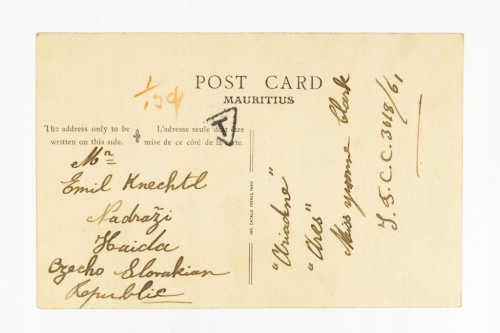 POST CARD
MAURITIUS
The address only to be
written on this side.
L'adresse seule doit être
mise de ce côté de la carte.
T
Mr
Emil Knechtl
Nadraži
Haida
Czecho Slovakian
Republic
"Ariadne"
"Ares"
Miss Yvonne Clark
I.S.C.C. 3018/61